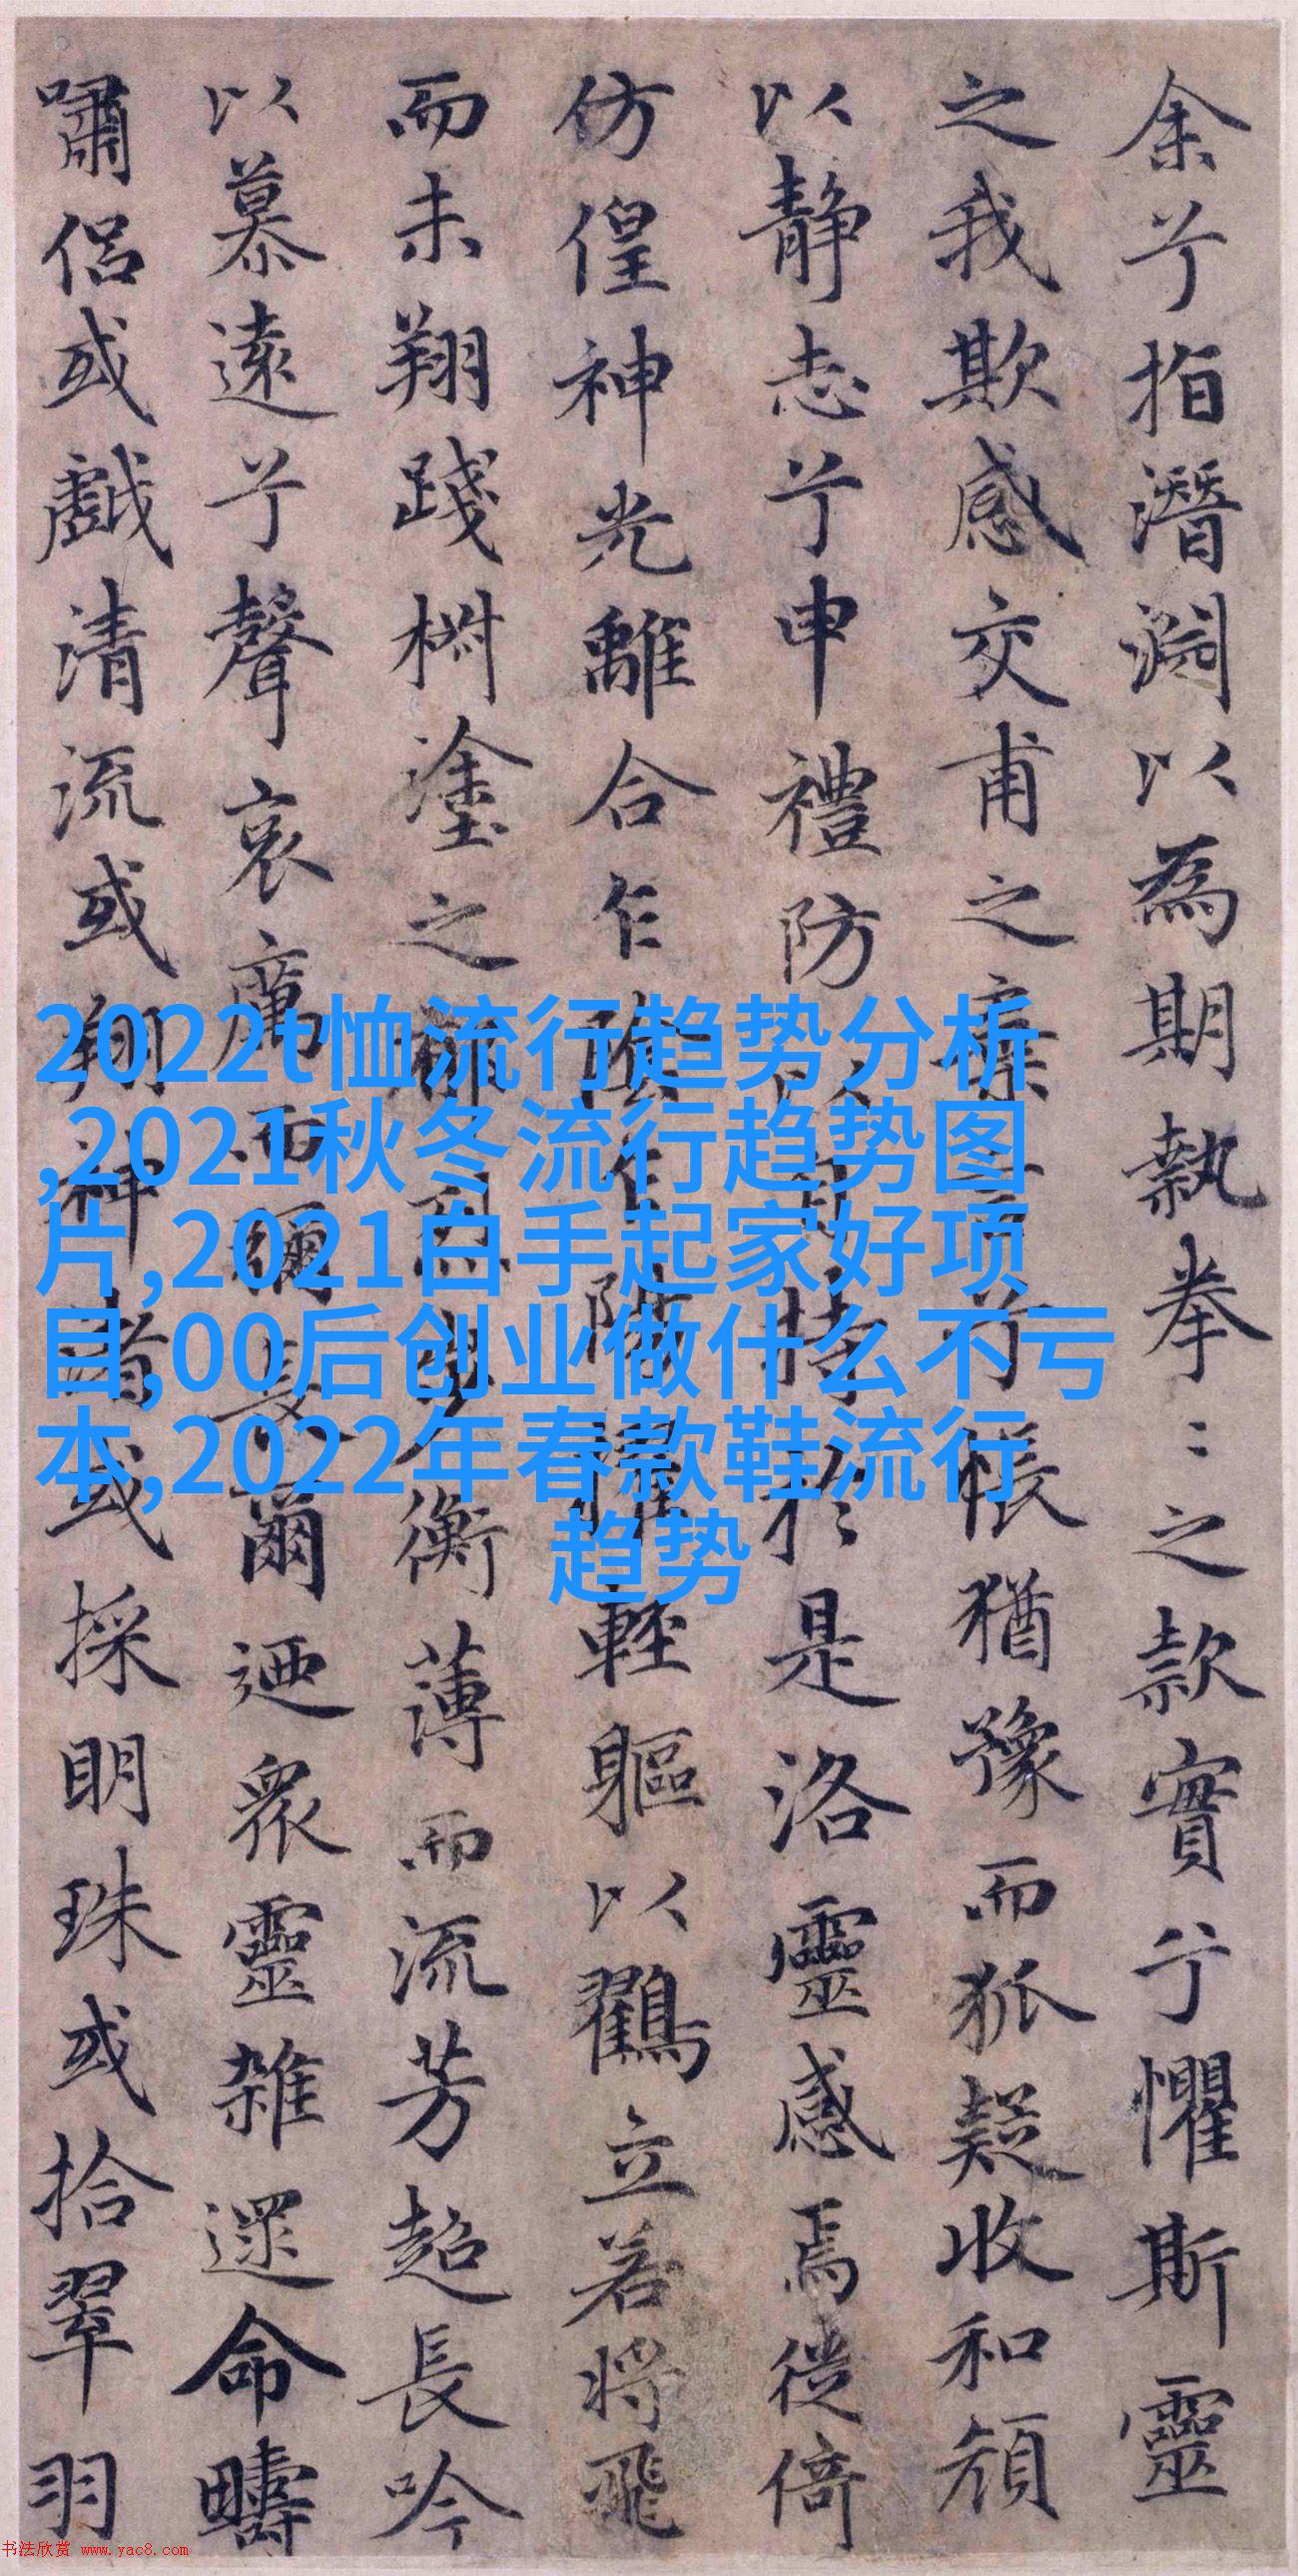 余兮指潛淵以為期執拳〻之款實兮懼斯靈
之我欺感交甫之棄言兮悵猶豫而狐疑收和顏
以靜志兮申禮防以自持於是洛靈感焉徙倚
仿偟神光離合乍陰乍陽擢輕軀以鶴立若將飛
而未翔踐椒塗之郁烈步衡薄而流芳超長吟
以慕遠兮聲哀厲而彌長爾迺眾靈雜遝命疇
嘯侶或戲清流或翔神渚或採明珠或拾翠羽
2022t恤流行趋势分析
,2021秋冬流行趋势图
片,2021白手起家好项
目,00后创业做什么不亏
本,2022年春款鞋流行
趋势
书法欣赏 www.yac8.com